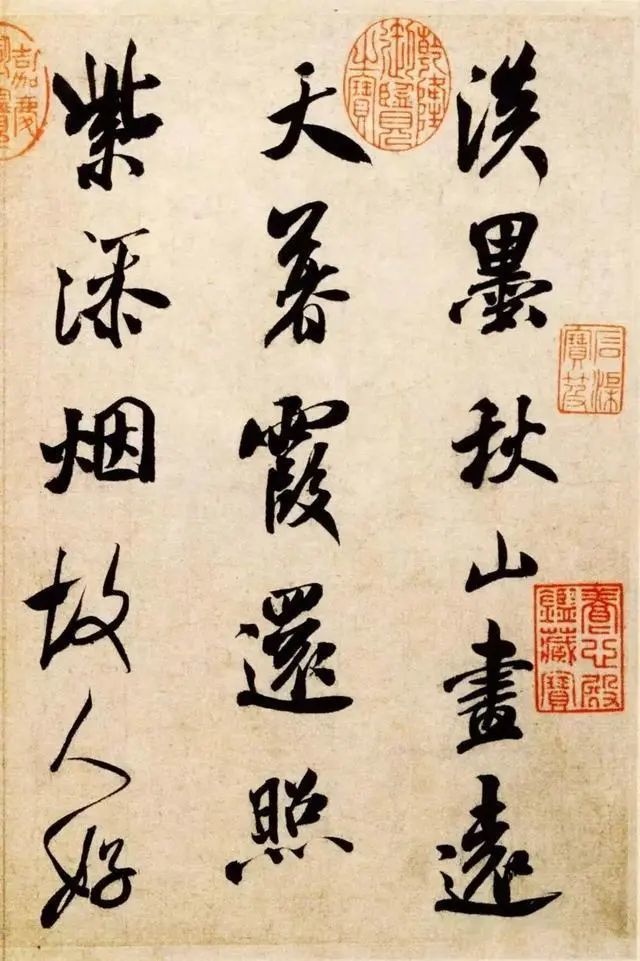 淡墨秋山畫遠
天暮霞還照
紫添烟故人好
乾隆御覽之寶
石渠寶笈
養心殿鑑藏寶